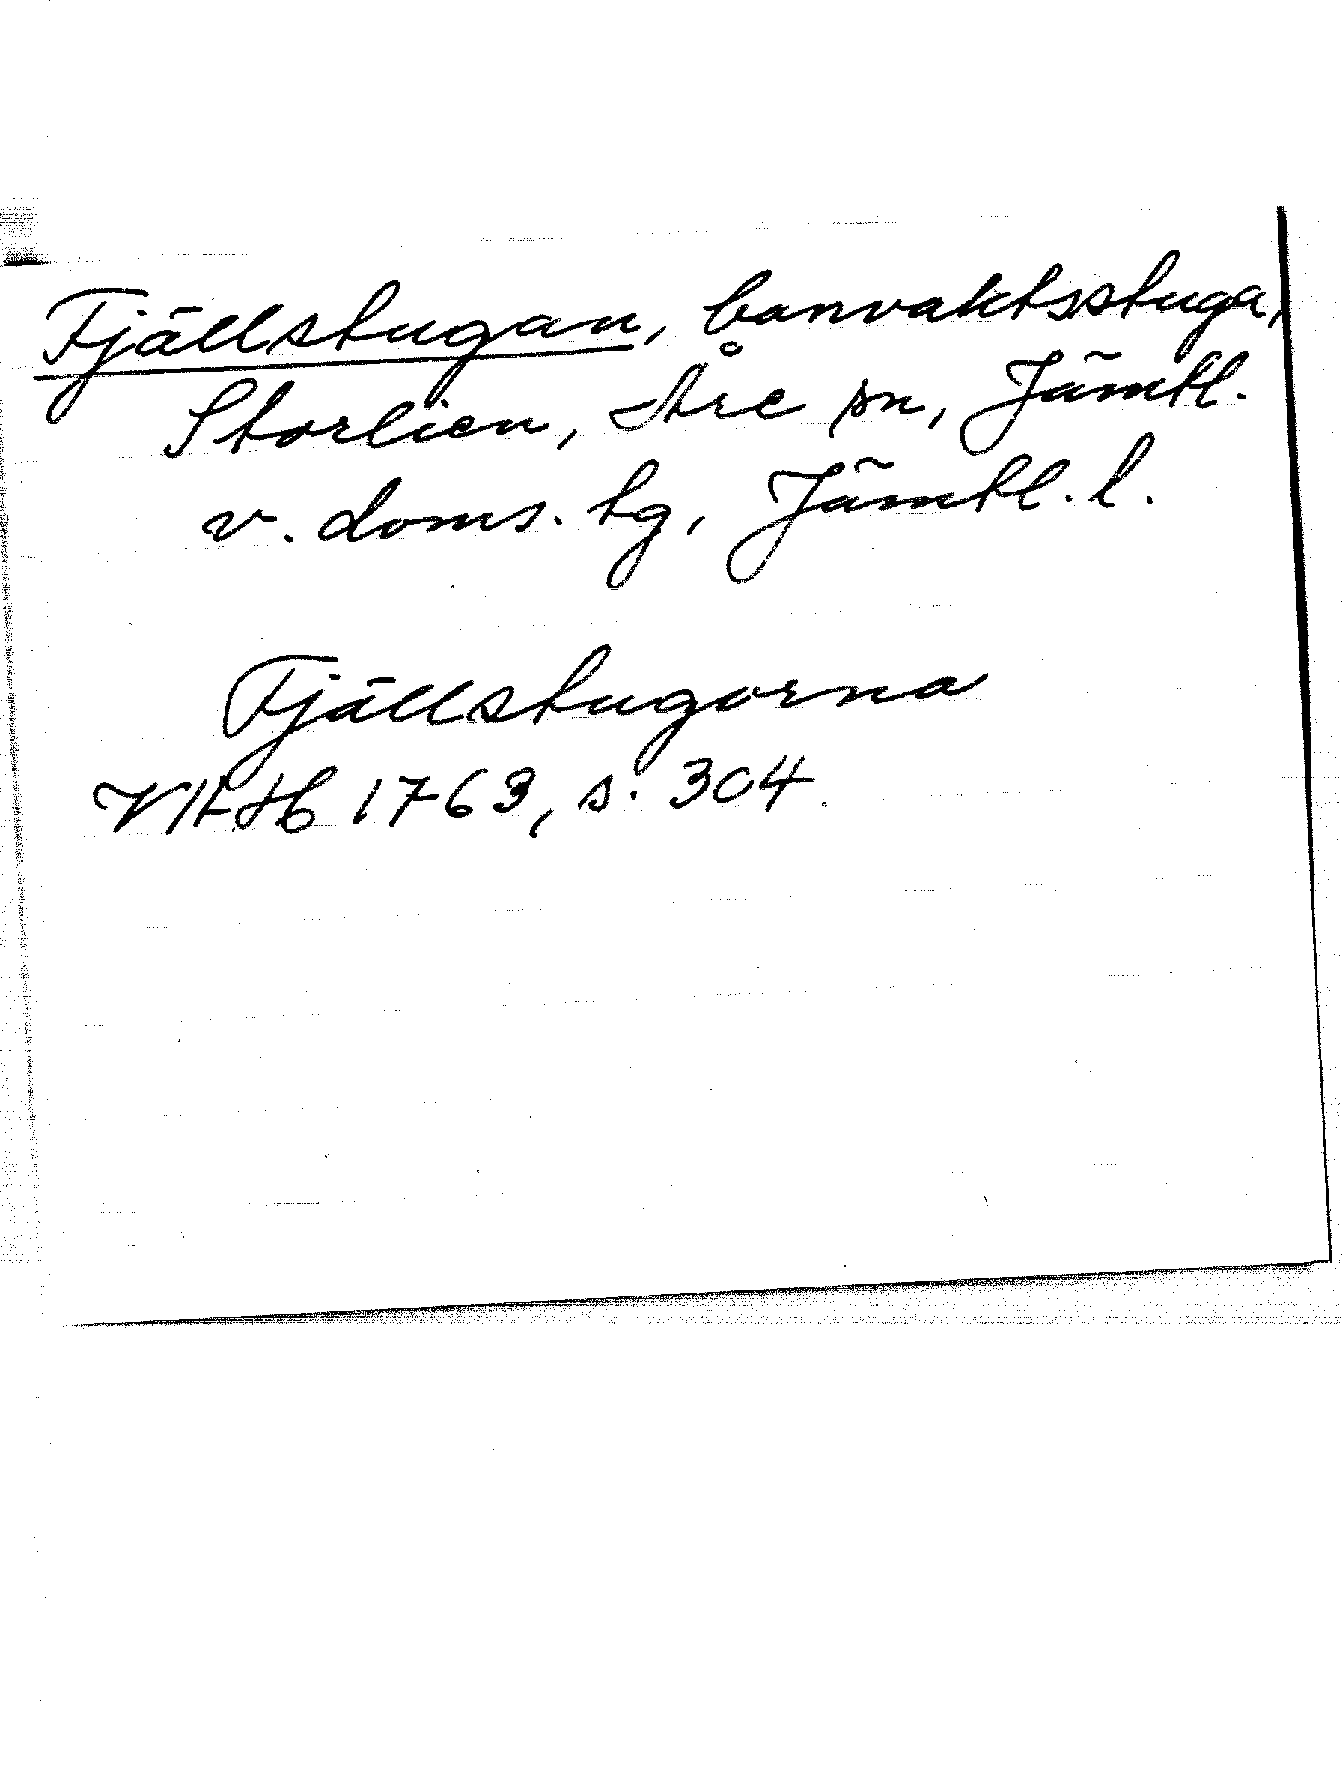 Fjällstugan, banvaktsstuga,
Storlien, Åre sn, Jämtl.
v. doms. tg, Jämtl. l.
Fjällstugorna
VHAH 1763, s. 304.